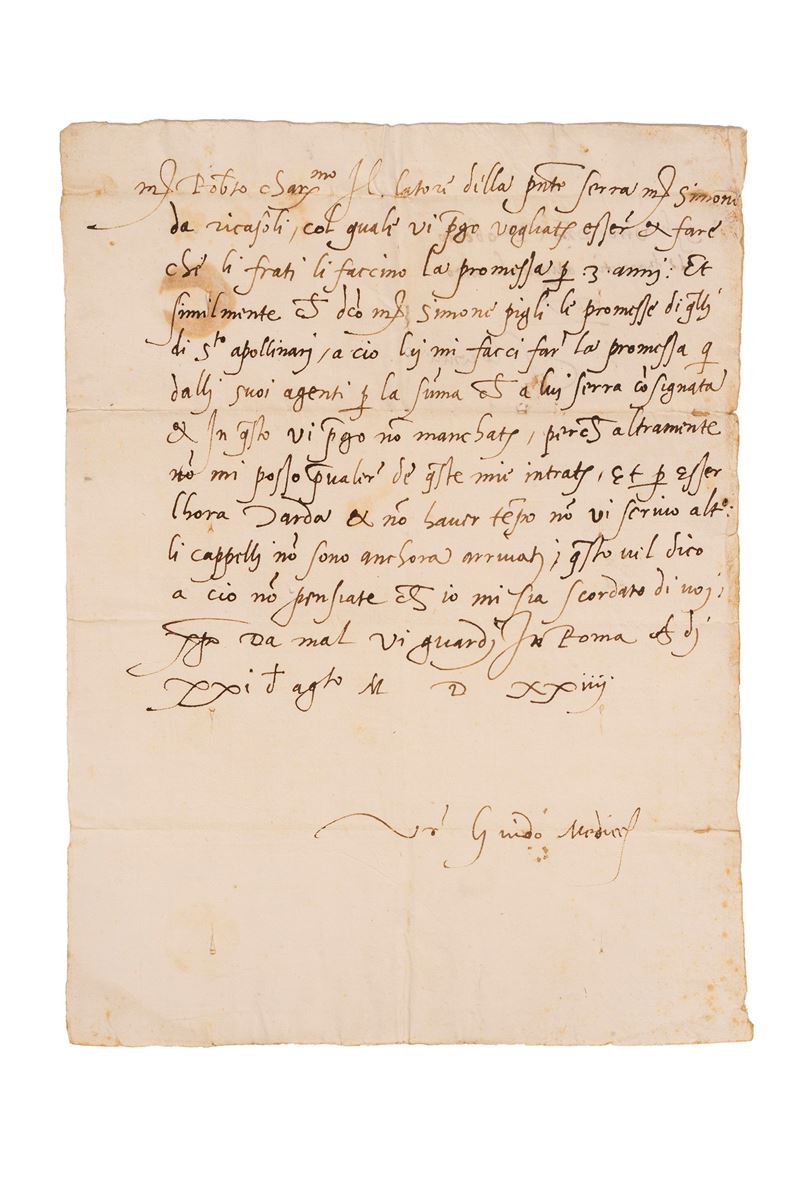 mſ Robto char.mo Il latore della pnte serra mſ Simone
da ricasoli, col quale vi pgo vogliate esser & fare
che li frati li faccino la promessa p 3 anni: Et
similmente ch dco mſ Simone pigli le promesse di qlli
di Sto apollinari, a cio lui mi facci far la promessa q
dalli suoi agenti p la sūma ch a lui serra cōsignata
& In qsto vi pgo nō manchate, perch altramente
nō mi posso pualer de qste mie intrate, Et p esser
lhora Tarda & nō haver tēpo nō vi scrivo alto:
li cappelli nō sono anchora arrivati, qsto vel dico
a cio nō pensiate ch io mi sia scordato di voi;
Da mal vi guardi In Roma A di
XXi d agto M D XXiiii
Vr Guido Medices